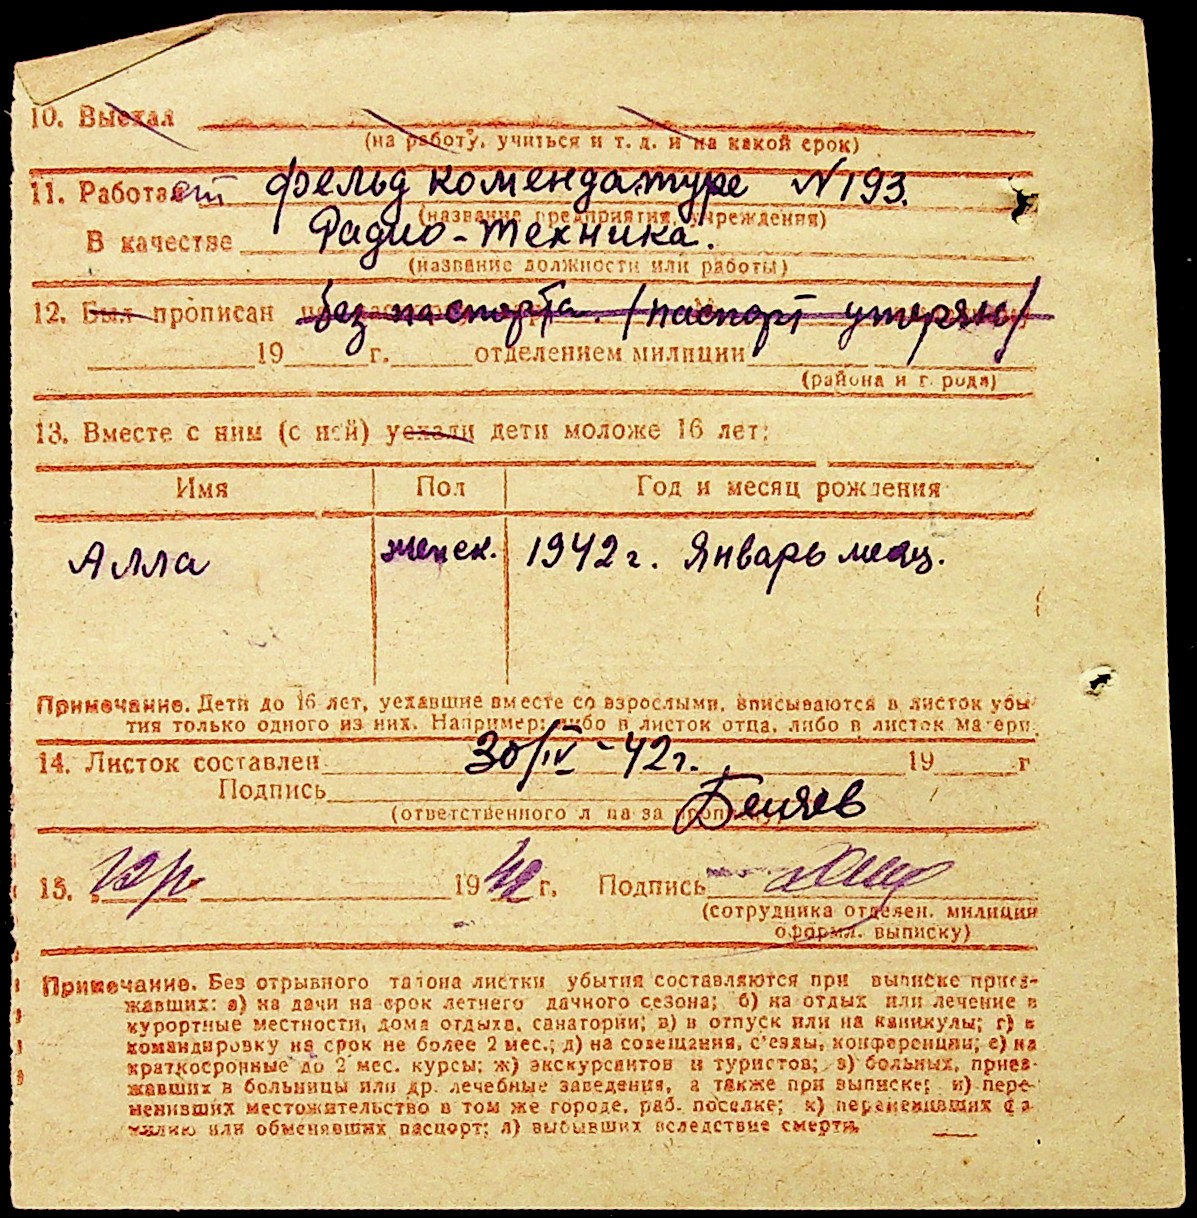 10. Выехал
(на работу, учиться и т. д. и на какой срок)
11. Работает фельд комендатуре №193.
(название предприятия, учреждения)
В качестве Радио-техника.
(название должности или работы)
12. Был прописан без паспорта. /паспорт утерян/
19 г. отделением милиции
(района и города)
13. Вместе с ним (с ней) уехали дети моложе 16 лет:
Имя Пол Год и месяц рождения
Алла женск. 1942 г. Январь месяц.
Примечание. Дети до 16 лет, уехавшие вместе со взрослыми, вписываются в листок убы-
тия только одного из них. Например: либо в листок отца, либо в листок матери.
14. Листок составлен 30/IV-42г. 19 г
Подпись Беляев
(ответственного лица за прописку)
15. 19 42 г. Подпись
(сотрудника отделен. милиции
оформл. выписку)
Примечание. Без отрывного талона листки убытия составляются при выписке приез-
жавших: а) на дачи на срок летнего дачного сезона; б) на отдых или лечение в
курортные местности, дома отдыха, санатории; в) в отпуск или на каникулы; г) в
командировку на срок не более 2 мес.; д) на совещания, с'езды, конференции; е) на
краткосрочные до 2 мес. курсы; ж) экскурсантов и туристов; з) больных, приез-
жавших в больницы или др. лечебные заведения, а также при выписке: и) пере-
менивших местожительство в том же городе, раб. поселке; к) переменивших фа-
милию или обменявших паспорт; л) выбывших вследствие смерти.